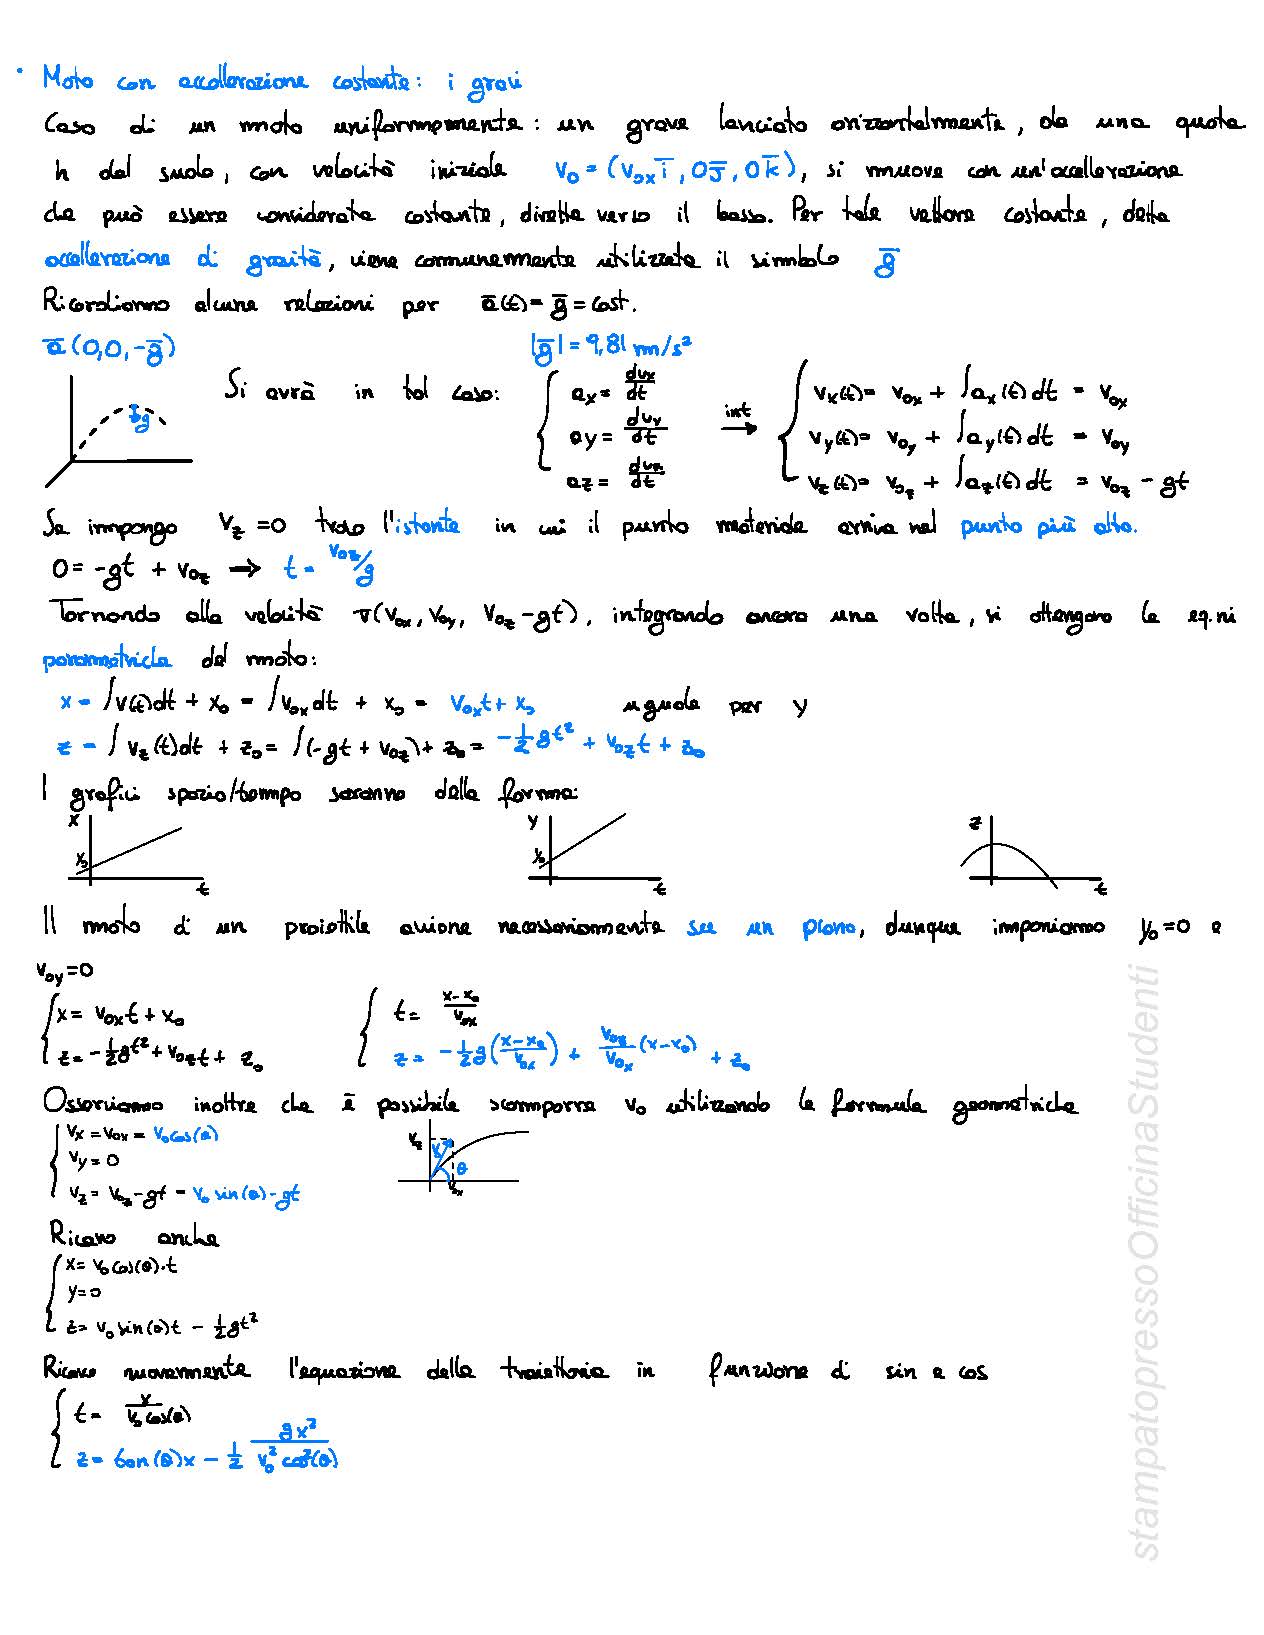 • Moto con accellerazione costante: i gravi
Caso di un moto uniformemente: un grave lanciato orizzontalmente, da una quota
h dal suolo, con velocità iniziale v₀ = (v₀ₓ i̅, 0 j̅, 0 k̅), si muove con un'accellerazione
che può essere considerata costante, diretta verso il basso. Per tale vettore costante, detta
accellerazione di gravità, viene comunemente utilizzata il simbolo g̅
Ricordiamo alcune relazioni per a̅(t) = g̅ = cost.
a̅(0,0,-g̅) |g̅| = 9,81 m/s²
g
Si avrà in tal caso:
ax = dvx/dt
ay = dvy/dt
az = dvz/dt
int →
vx(t) = v₀x + ∫ax(t)dt = v₀x
vy(t) = v₀y + ∫ay(t)dt = v₀y
vz(t) = v₀z + ∫az(t)dt = v₀z - gt
Se impongo Vz = 0 trovo l'istante in cui il punto materiale arriva nel punto più alto.
0 = -gt + v₀z → t = v₀z/g
Tornando alla velocità v̅(v₀x, v₀y, v₀z - gt), integrando ancora una volta, si ottengono le eq.ni
parametriche del moto:
x = ∫v(t)dt + x₀ = ∫v₀x dt + x₀ = v₀x t + x₀ uguale per y
z = ∫vz(t)dt + z₀ = ∫(-gt + v₀z) + z₀ = -½gt² + v₀z t + z₀
I grafici spazio/tempo saranno della forma:
x x₀ t
y y₀ t
z t
Il moto di un proiettile avviene necessariamente su un piano, dunque imponiamo y₀ = 0 e
v₀y = 0
x = v₀x t + x₀
z = -½gt² + v₀z t + z₀
t = (x-x₀)/v₀x
z = -½g((x-x₀)/v₀x) + v₀z/v₀x (x-x₀) + z₀
Osserviamo inoltre che è possibile scomporre v₀ utilizzando le formule geometriche
vx = v₀x = v₀cos(θ)
vy = 0
vz = v₀z - gt = v₀ sin(θ) - gt
vz v₀ θ v₀x
Ricavo anche
x = v₀ cos(θ)·t
y = 0
z = v₀ sin(θ)t - ½gt²
Ricavo nuovamente l'equazione della traiettoria in funzione di sin e cos
t = x/(v₀ cos(θ))
z = tan(θ)x - ½ gx²/(v₀² cos²(θ))
stampatopressoOfficinaStudenti